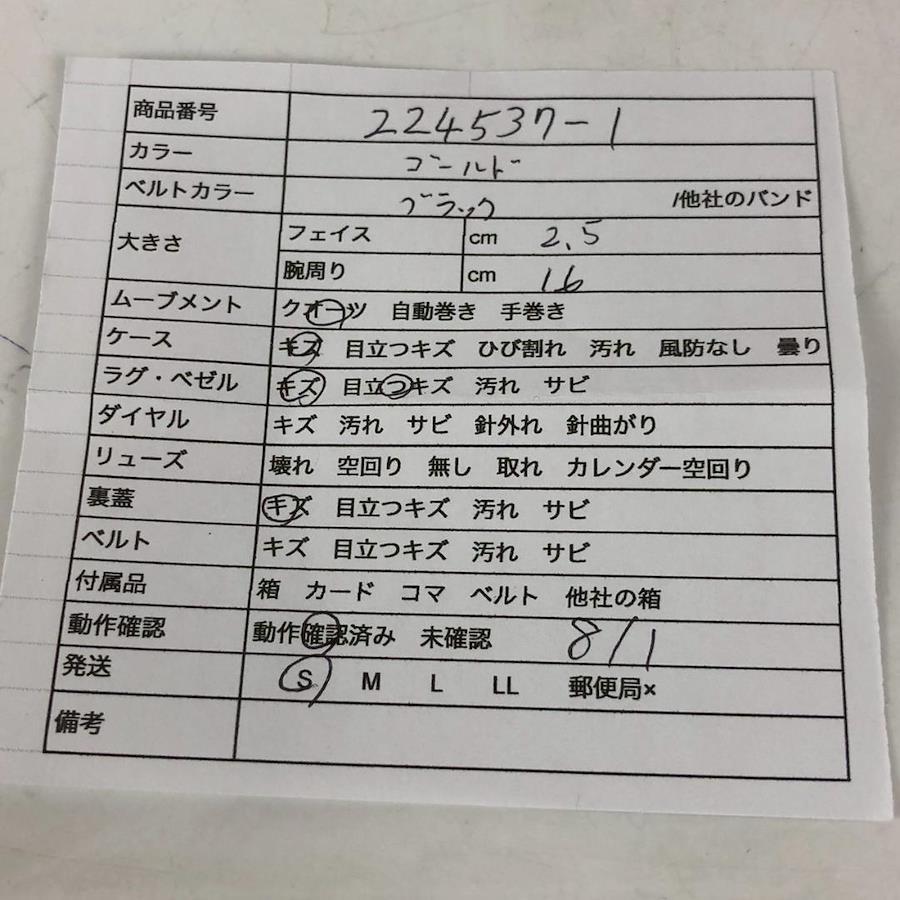 商品番号 224537-1
カラー ゴールド
ベルトカラー ブラック /他社のバンド
大きさ フェイス cm 2.5
腕周り cm 16
ムーブメント クオーツ 自動巻き 手巻き
ケース キズ 目立つキズ ひび割れ 汚れ 風防なし 曇り
ラグ・ベゼル キズ 目立つキズ 汚れ サビ
ダイヤル キズ 汚れ サビ 針外れ 針曲がり
リューズ 壊れ 空回り 無し 取れ カレンダー空回り
裏蓋 キズ 目立つキズ 汚れ サビ
ベルト キズ 目立つキズ 汚れ サビ
付属品 箱 カード コマ ベルト 他社の箱
動作確認 動作確認済み 未確認 8/1
発送 S M L LL 郵便局×
備考